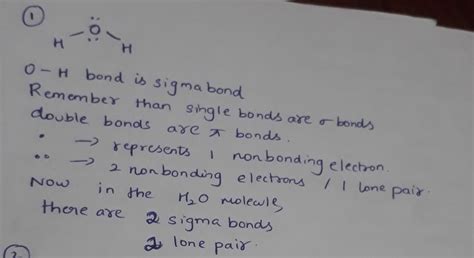 1
O
H H
O-H bond is sigma bond
Remember than single bonds are σ bonds
double bonds are π bonds.
• → represents 1 nonbonding electron.
•• → 2 nonbonding electrons / 1 lone pair.
Now in the H₂O molecule,
there are 2 sigma bonds
2 lone pair.